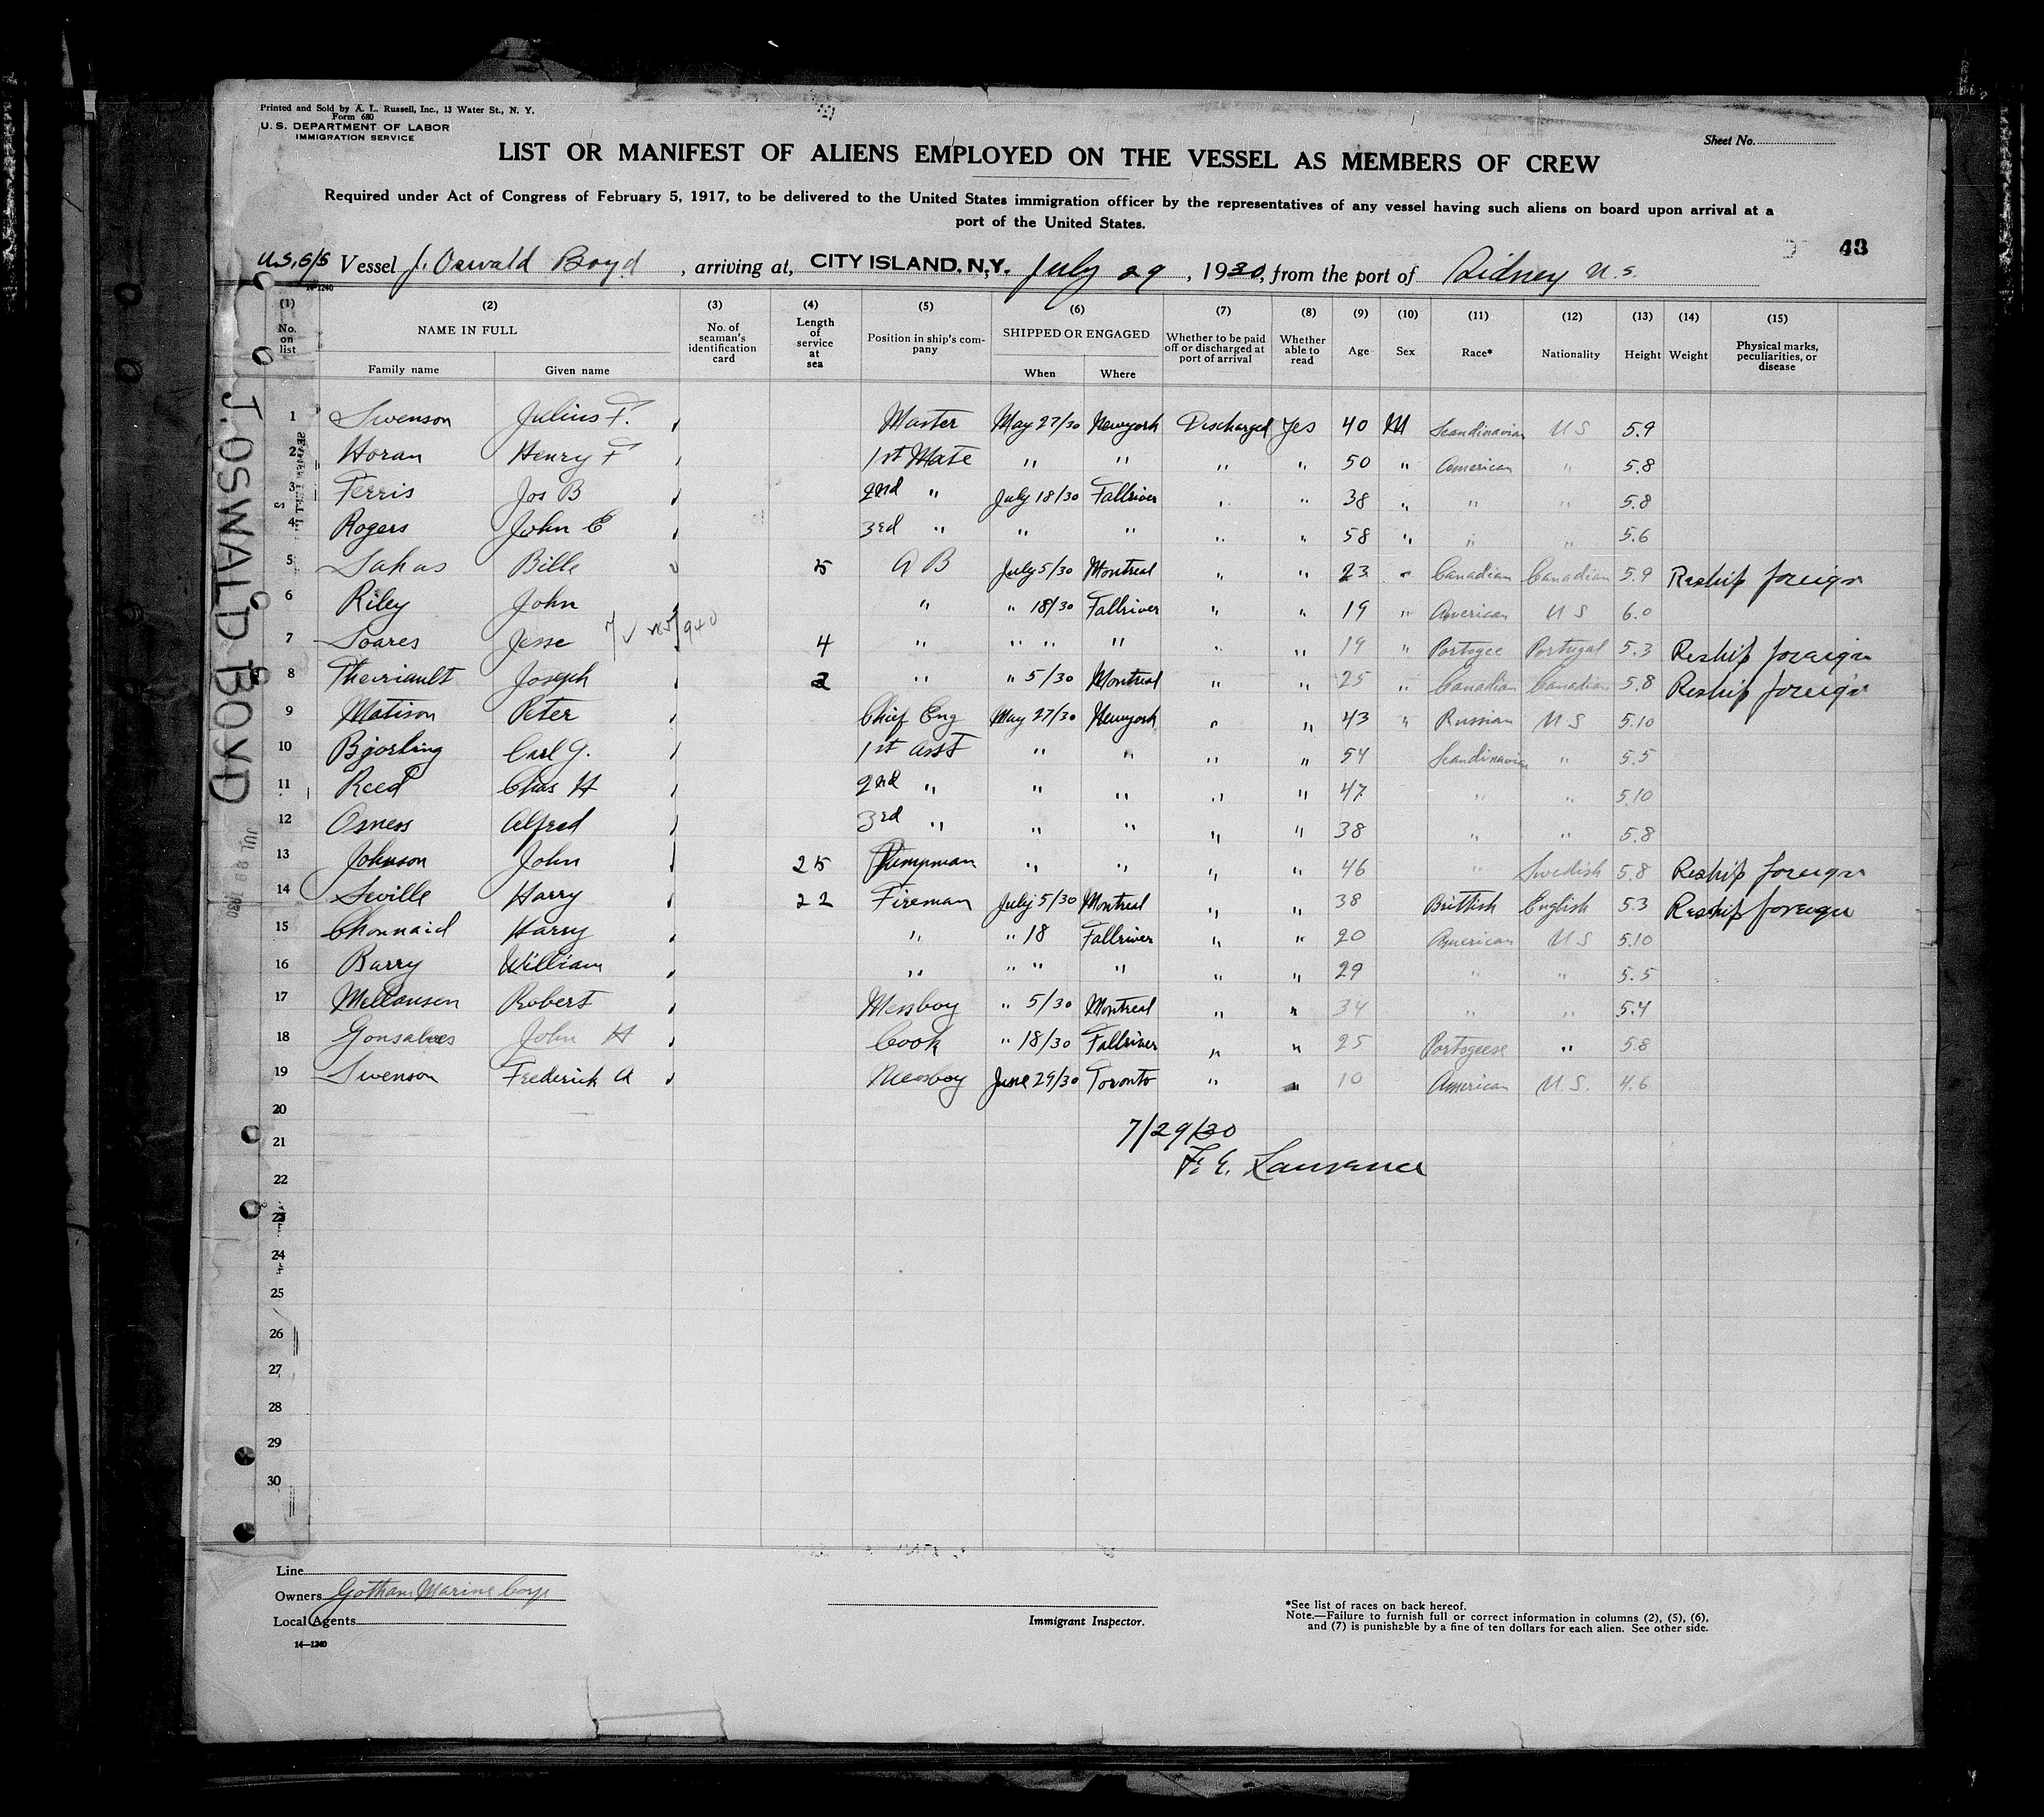 Printed and Sold by A. L. Russell, Inc., 13 Water St., N. Y.
Form 680
U. S. DEPARTMENT OF LABOR
IMMIGRATION SERVICE
Sheet No.
LIST OR MANIFEST OF ALIENS EMPLOYED ON THE VESSEL AS MEMBERS OF CREW
Required under Act of Congress of February 5, 1917, to be delivered to the United States immigration officer by the representatives of any vessel having such aliens on board upon arrival at a
port of the United States.
43
U.S. S/S Vessel J. Oswald Boyd, arriving at, CITY ISLAND, N.Y. July 29, 1930, from the port of Sidney N.S.
14-1240
(1) No. on list
(2) NAME IN FULL
Family name Given name
(3) No. of seaman's identification card
(4) Length of service at sea
(5) Position in ship's company
(6) SHIPPED OR ENGAGED
When Where
(7) Whether to be paid off or discharged at port of arrival
(8) Whether able to read
(9) Age
(10) Sex
(11) Race*
(12) Nationality
(13) Height
(14) Weight
(15) Physical marks, peculiarities, or disease
1 Swenson Julius F. Master May 27/30 Newyork Discharged Yes 40 M Scandinavian U S 5.9
2 Horan Henry F 1st Mate " " " " 50 " American " 5.8
3 Ferris Jos B 2nd " July 18/30 Fallriver " " 38 " " " 5.8
4 Rogers John E 3rd " " " " " 58 " " " 5.6
5 Sakas Bille 5 A B July 5/30 Montreal " " 23 " Canadian Canadian 5.9 Reship foreign
6 Riley John " " 18/30 Fallriver " " 19 " American U S 6.0
7 Soares Jesse 4 " " " " " " 19 " Portogee Portugal 5.3 Reship foreign
8 Theiriault Joseph 2 " " 5/30 Montreal " " 25 " Canadian Canadian 5.8 Reship foreign
9 Matison Peter Chief Eng May 27/30 Newyork " " 43 " Russian U S 5.10
10 Bjorling Carl G. 1st Asst " " " " 54 Scandinavian " 5.5
11 Reed Chas H 2nd " " " " " 47 " " 5.10
12 Osness Alfred 3rd " " " " " 38 " " 5.8
13 Johnson John 25 Pumpman " " " " 46 " Swedish 5.8 Reship foreign
14 Seville Harry 22 Fireman July 5/30 Montreal " " 38 Brittish English 5.3 Reship foreign
15 Chonnaid Harry " " 18 Fallriver " " 20 American U S 5.10
16 Barry William " " " " " " 29 " " 5.5
17 Mellansen Robert Messboy " 5/30 Montreal " " 34 " " 5.4
18 Gonsalves John H Cook " 18/30 Fallriver " " 25 Portogeese " 5.8
19 Swenson Frederick A Messboy June 29/30 Toronto " " 10 American U.S. 4.6
20
7/29/30
21
F. E. Lawrence
22
23
24
25
26
27
28
29
30
J. OSWALD BOYD
JUL 29 1930
Line
Owners Gotham Marine Corp
Local Agents
14—1240
Immigrant Inspector.
*See list of races on back hereof.
Note.—Failure to furnish full or correct information in columns (2), (5), (6),
and (7) is punishable by a fine of ten dollars for each alien. See other side.